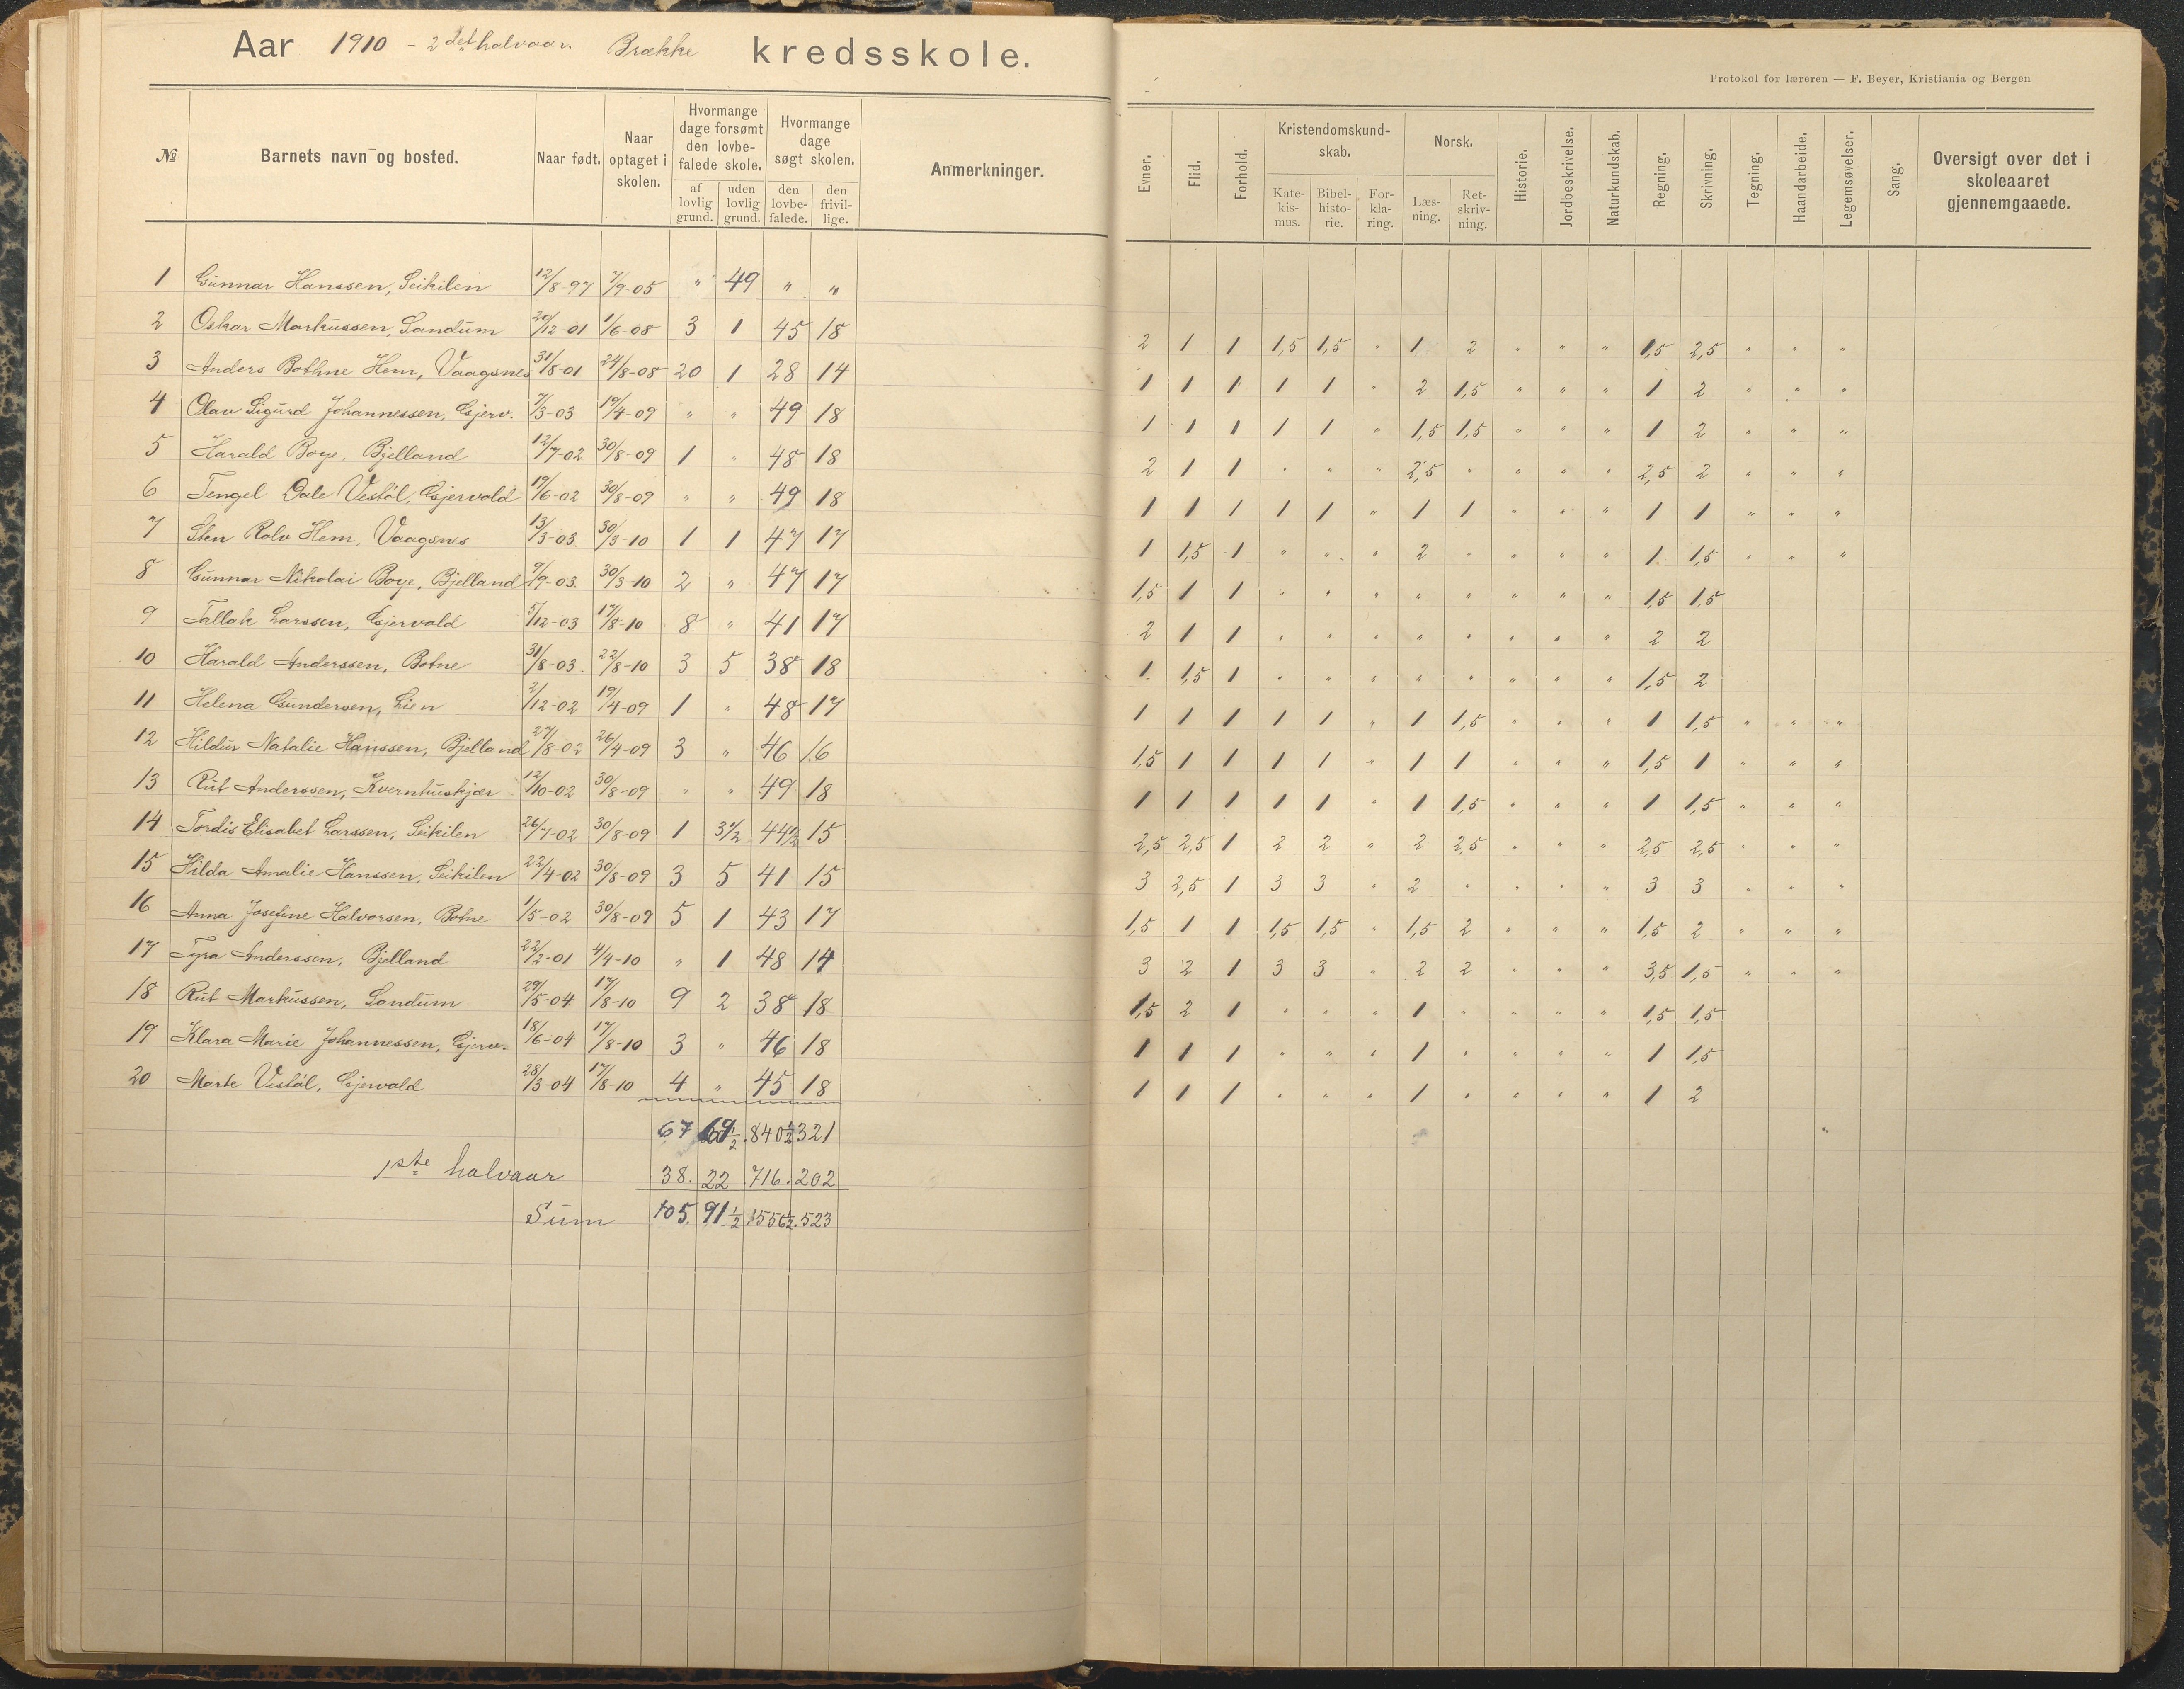 Aar 1910 - 2det halvaar. Brække kredsskole.
Protokol for læreren — F. Beyer, Kristiania og Bergen
№ Barnets navn og bosted. Naar født. Naar optaget i skolen. Hvormange dage forsømt den lovbefalede skole. af lovlig grund. uden lovlig grund. Hvormange dage søgt skolen. den lovbefalede. den frivillige. Anmerkninger.
Evner. Flid. Forhold. Kristendomskundskab. Katekismus. Bibelhistorie. Forklaring. Norsk. Læsning. Retskrivning. Historie. Jordbeskrivelse. Naturkundskab. Regning. Skrivning. Tegning. Haandarbeide. Legemsøvelser. Sang. Oversigt over det i skoleaaret gjennemgaaede.
1 Gunnar Hanssen, Seikilen 12/8-97 7/9-05 " 49 " "
2 Oskar Markussen, Sandum 20/12-01 1/6-08 3 1 45 18 2 1 1 1,5 1,5 " 1 2 " " " 1,5 2,5 " " "
3 Anders Bothne Hem, Vaagsnes 31/8-01 24/8-08 20 1 28 14 1 1 1 1 1 " 2 1,5 " " " 1 2 " " "
4 Olav Sigurd Johannessen, Gjerv. 7/3-03 19/4-09 " " 49 18 1 1 1 1 1 " 1,5 1,5 " " " 1 2 " " "
5 Harald Boye, Bjelland 12/7-02 30/8-09 1 " 48 18 2 1 1 " " " 2,5 " " " " 2,5 2 " " "
6 Tengel Dale Vestøl, Gjervold 19/6-02 30/8-09 " " 49 18 1 1 1 1 1 " 1 1 " " " 1 1 " " "
7 Sten Rolv Hem, Vaagsnes 13/3-03 30/3-10 1 1 47 17 1 1,5 1 " " " 2 " " " " 1 1,5 " " "
8 Gunnar Nikolai Boye, Bjelland 7/9-03. 30/3-10 2 " 47 17 1,5 1 1 " " " " " " " " 1,5 1,5
9 Tallak Larssen, Gjervold 5/12-03 17/8-10 8 " 41 17 2 1 1 " " " " " " " " 2 2
10 Harald Anderssen, Botne 31/8-03. 22/8-10 3 5 38 18 1 1,5 1 " " " " " " " " 1,5 2
11 Helena Gundersen, Lien 2/12-02 19/4-09 1 " 48 17 1 1 1 1 1 " 1 1,5 " " " 1 1,5 " " "
12 Hildur Natalie Hanssen, Bjelland 27/8-02 26/4-09 3 " 46 16 1,5 1 1 1 1 " 1 1 " " " 1,5 1 " " "
13 Rut Anderssen, Kvernhuskjær 12/10-02 30/8-09 " " 49 18 1 1 1 1 1 " 1 1,5 " " " 1 1,5 " " "
14 Tordis Elisabet Larssen, Seikilen 26/7-02 30/8-09 1 3½ 44½ 15 2,5 2,5 1 2 2 " 2 2,5 " " " 2,5 2,5 " " "
15 Hilda Amalie Hanssen, Seikilen 22/4-02 30/8-09 3 5 41 15 3 2,5 1 3 3 " 2 " " " " 3 3 " " "
16 Anna Josefine Halvorsen, Botne 1/5-02 30/8-09 5 1 43 17 1,5 1 1 1,5 1,5 " 1,5 2 " " " 1,5 2 " " "
17 Tyra Anderssen, Bjelland 22/2-01 4/4-10 " 1 48 14 3 2 1 3 3 " 2 2 " " " 3,5 1,5 " " "
18 Rut Markussen, Sandum 29/5-04 17/8-10 9 2 38 18 1,5 2 1 " " " 1 " " " " 1,5 1,5
19 Klara Marie Johannessen, Gjerv. 18/6-04 17/8-10 3 " 46 18 1 1 1 " " " 1 " " " " 1 1,5
20 Marte Vestøl, Gjervold 28/3-04 17/8-10 4 " 45 18 1 1 1 " " " 1 " " " " 1 2
67 69½ 840½ 321
1ste halvaar 38. 22 716. 202
Sum 105. 91½ 1556½. 523